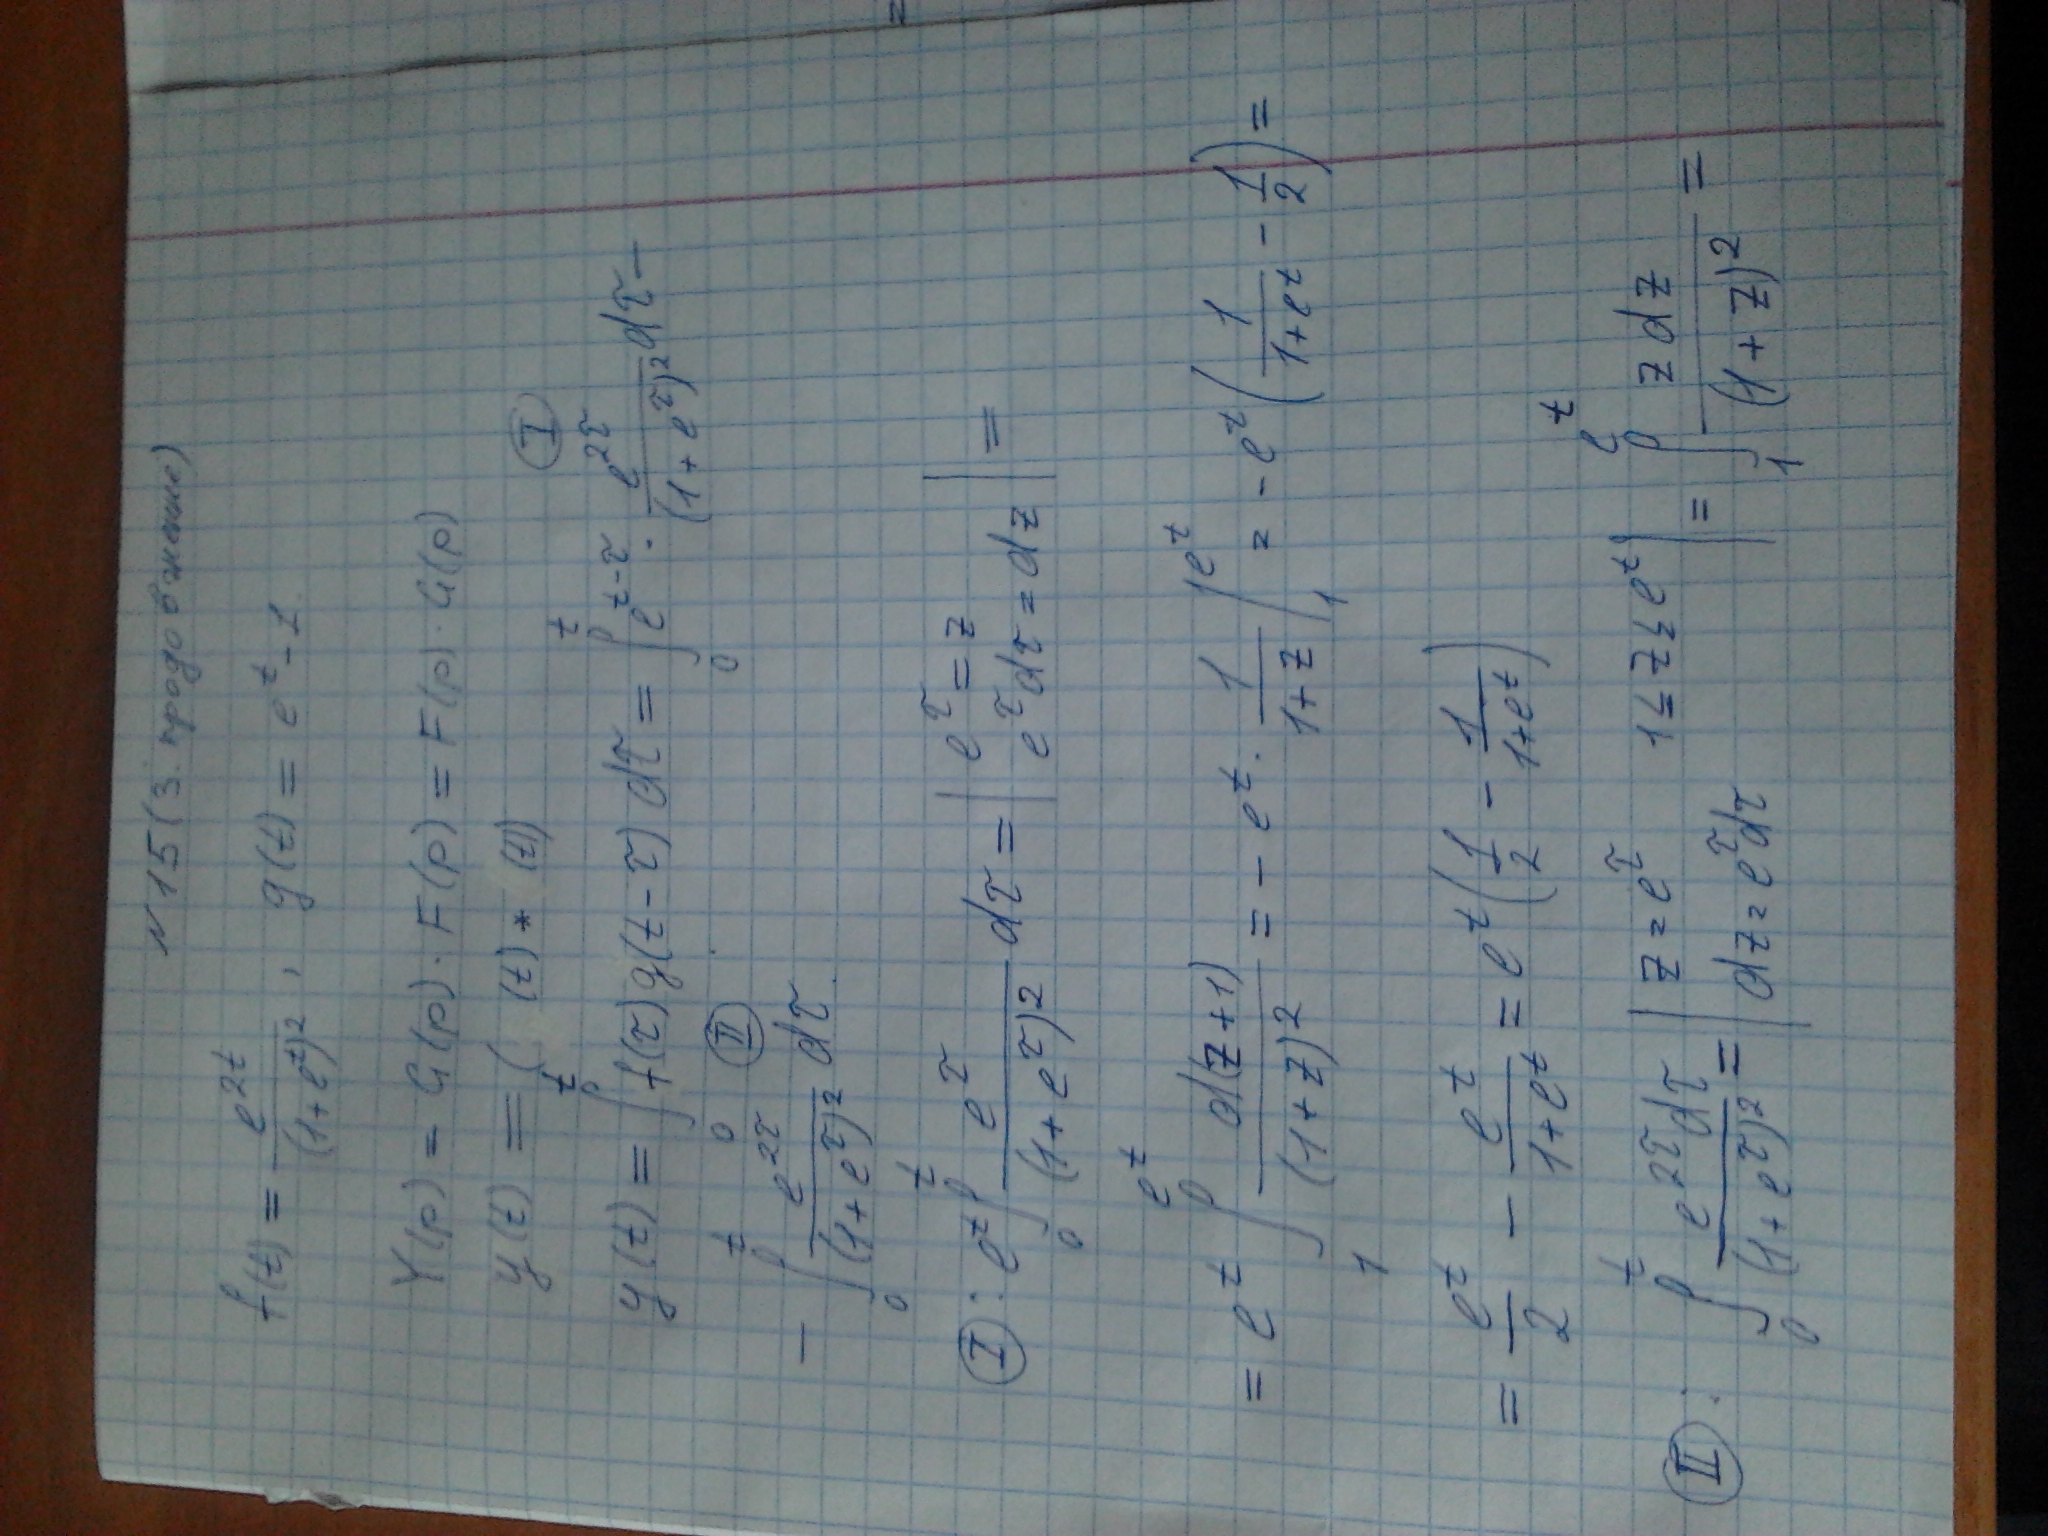 №15 (3. продовження)
f(t) = e^{2t} / (1+e^t)^2 , g(t) = e^t - 1.
Y(p) = G(p) · F(p) = F(p) · G(p)
y(t) = ( (t) * (t))
y(t) = ∫_0^t f(τ) g(t-τ) dτ = ∫_0^t e^{t-τ} · e^{2τ} / (1+e^τ)^2 dτ - Ⅰ
- ∫_0^t e^{2τ} / (1+e^τ)^2 dτ. Ⅱ
Ⅰ : e^t ∫_0^t e^τ / (1+e^τ)^2 dτ = | e^τ = z e^τ dτ = dz | =
= e^t ∫_1^{e^t} d(z+1) / (1+z)^2 = - e^t · 1 / (1+z) |_1^{e^t} = - e^t ( 1 / (1+e^t) - 1/2 ) =
= e^t / 2 - e^t / (1+e^t) = e^t ( 1/2 - 1 / (1+e^t) )
Ⅱ : ∫_0^t e^{2τ} dτ / (1+e^τ)^2 = | z = e^τ 1 ≤ z ≤ e^t dz = e^τ dτ | = ∫_1^{e^t} z dz / (1+z)^2 =
=